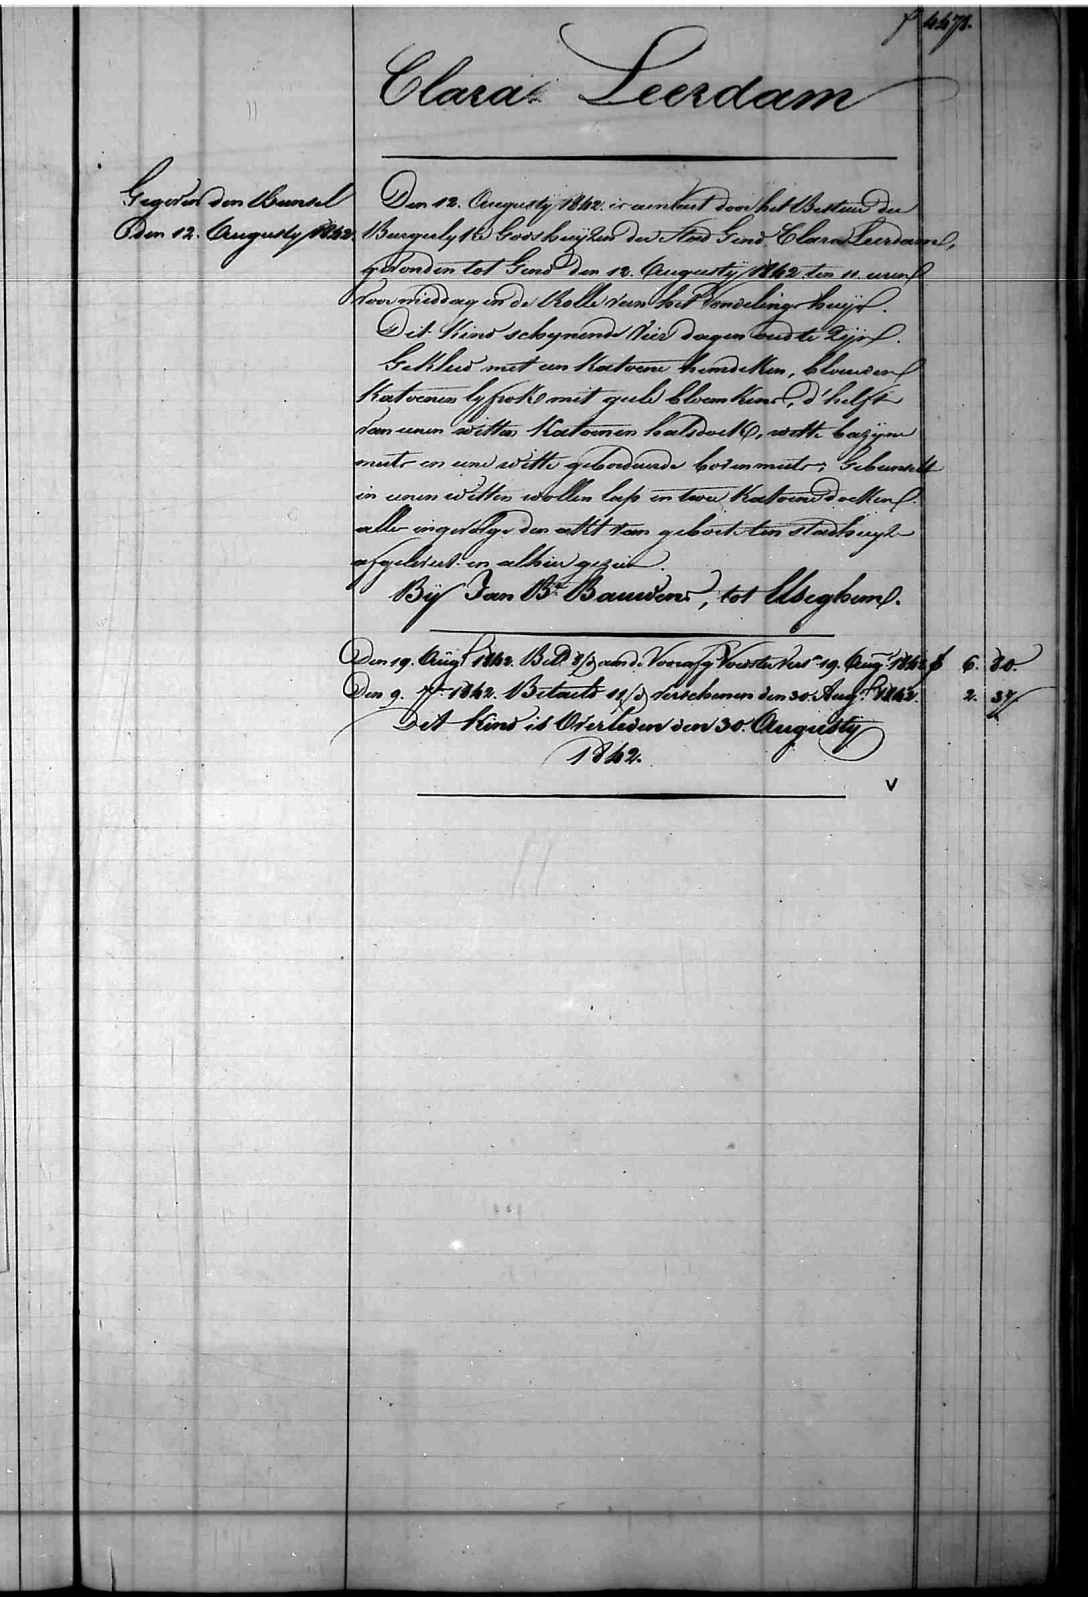 f 447.
Clara Leerdam
Gegeven den Bunsel
den 12. Augusty 1842.
Den 12. Augusty 1842. is aenveert door het Bestier der
Burgerlyke Godshuyzen der Stad Gend Clara Leerdam,
gevonden tot Gend den 12. Augusty 1842 ten 11. uren
voormiddag in de Rolle van het Vondelinge huys.
Dit kind schynende vier dagen oud te zyn.
Gekleed met een katoene hemdeken, blauwen
katoenen lyfrok met gele bloemkens, d'helft
van eenen witten katoenen halsdoek, witte bazyne
muts en eene witte geborduerde bovenmuts; Gebunselt
in eenen witten wollen lap en twee katoene doeken.
alles ingevolge den akt van geboorte ten stadhuyze
afgelevert en alhier gezien.
By Jan Bte Bauwens, tot Useghem.
Den 19. Augt 1842. Betd aende Voorafg Voedster Vers 19. Augt 1842 f 6. 80.
Den 9. 7b 1842. Betaelt verschenen den 30. Augt 1842. 2. 37
Dit kind is Overleden den 30. Augusty
1842.
v